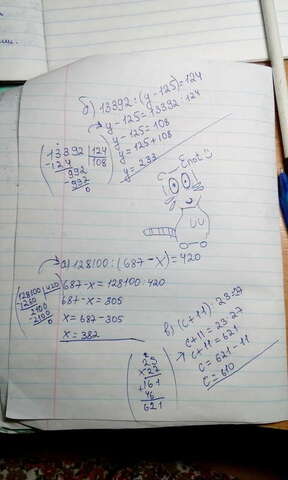 б) 13392 : (y - 125) = 124
y - 125 = 13392 : 124
y - 125 = 108
y = 125 + 108
y = 233
13392 | 124
- 124 | 108
992
- 992
0
Enot
а) 128100 : (687 - x) = 420
687 - x = 128100 : 420
687 - x = 305
x = 687 - 305
x = 382
128100 | 420
- 1260
2100
- 2100
0
в) (c + 11) : 23 = 27
c + 11 = 23 · 27
c + 11 = 621
c = 621 - 11
c = 610
23
x 27
+ 161
46
621